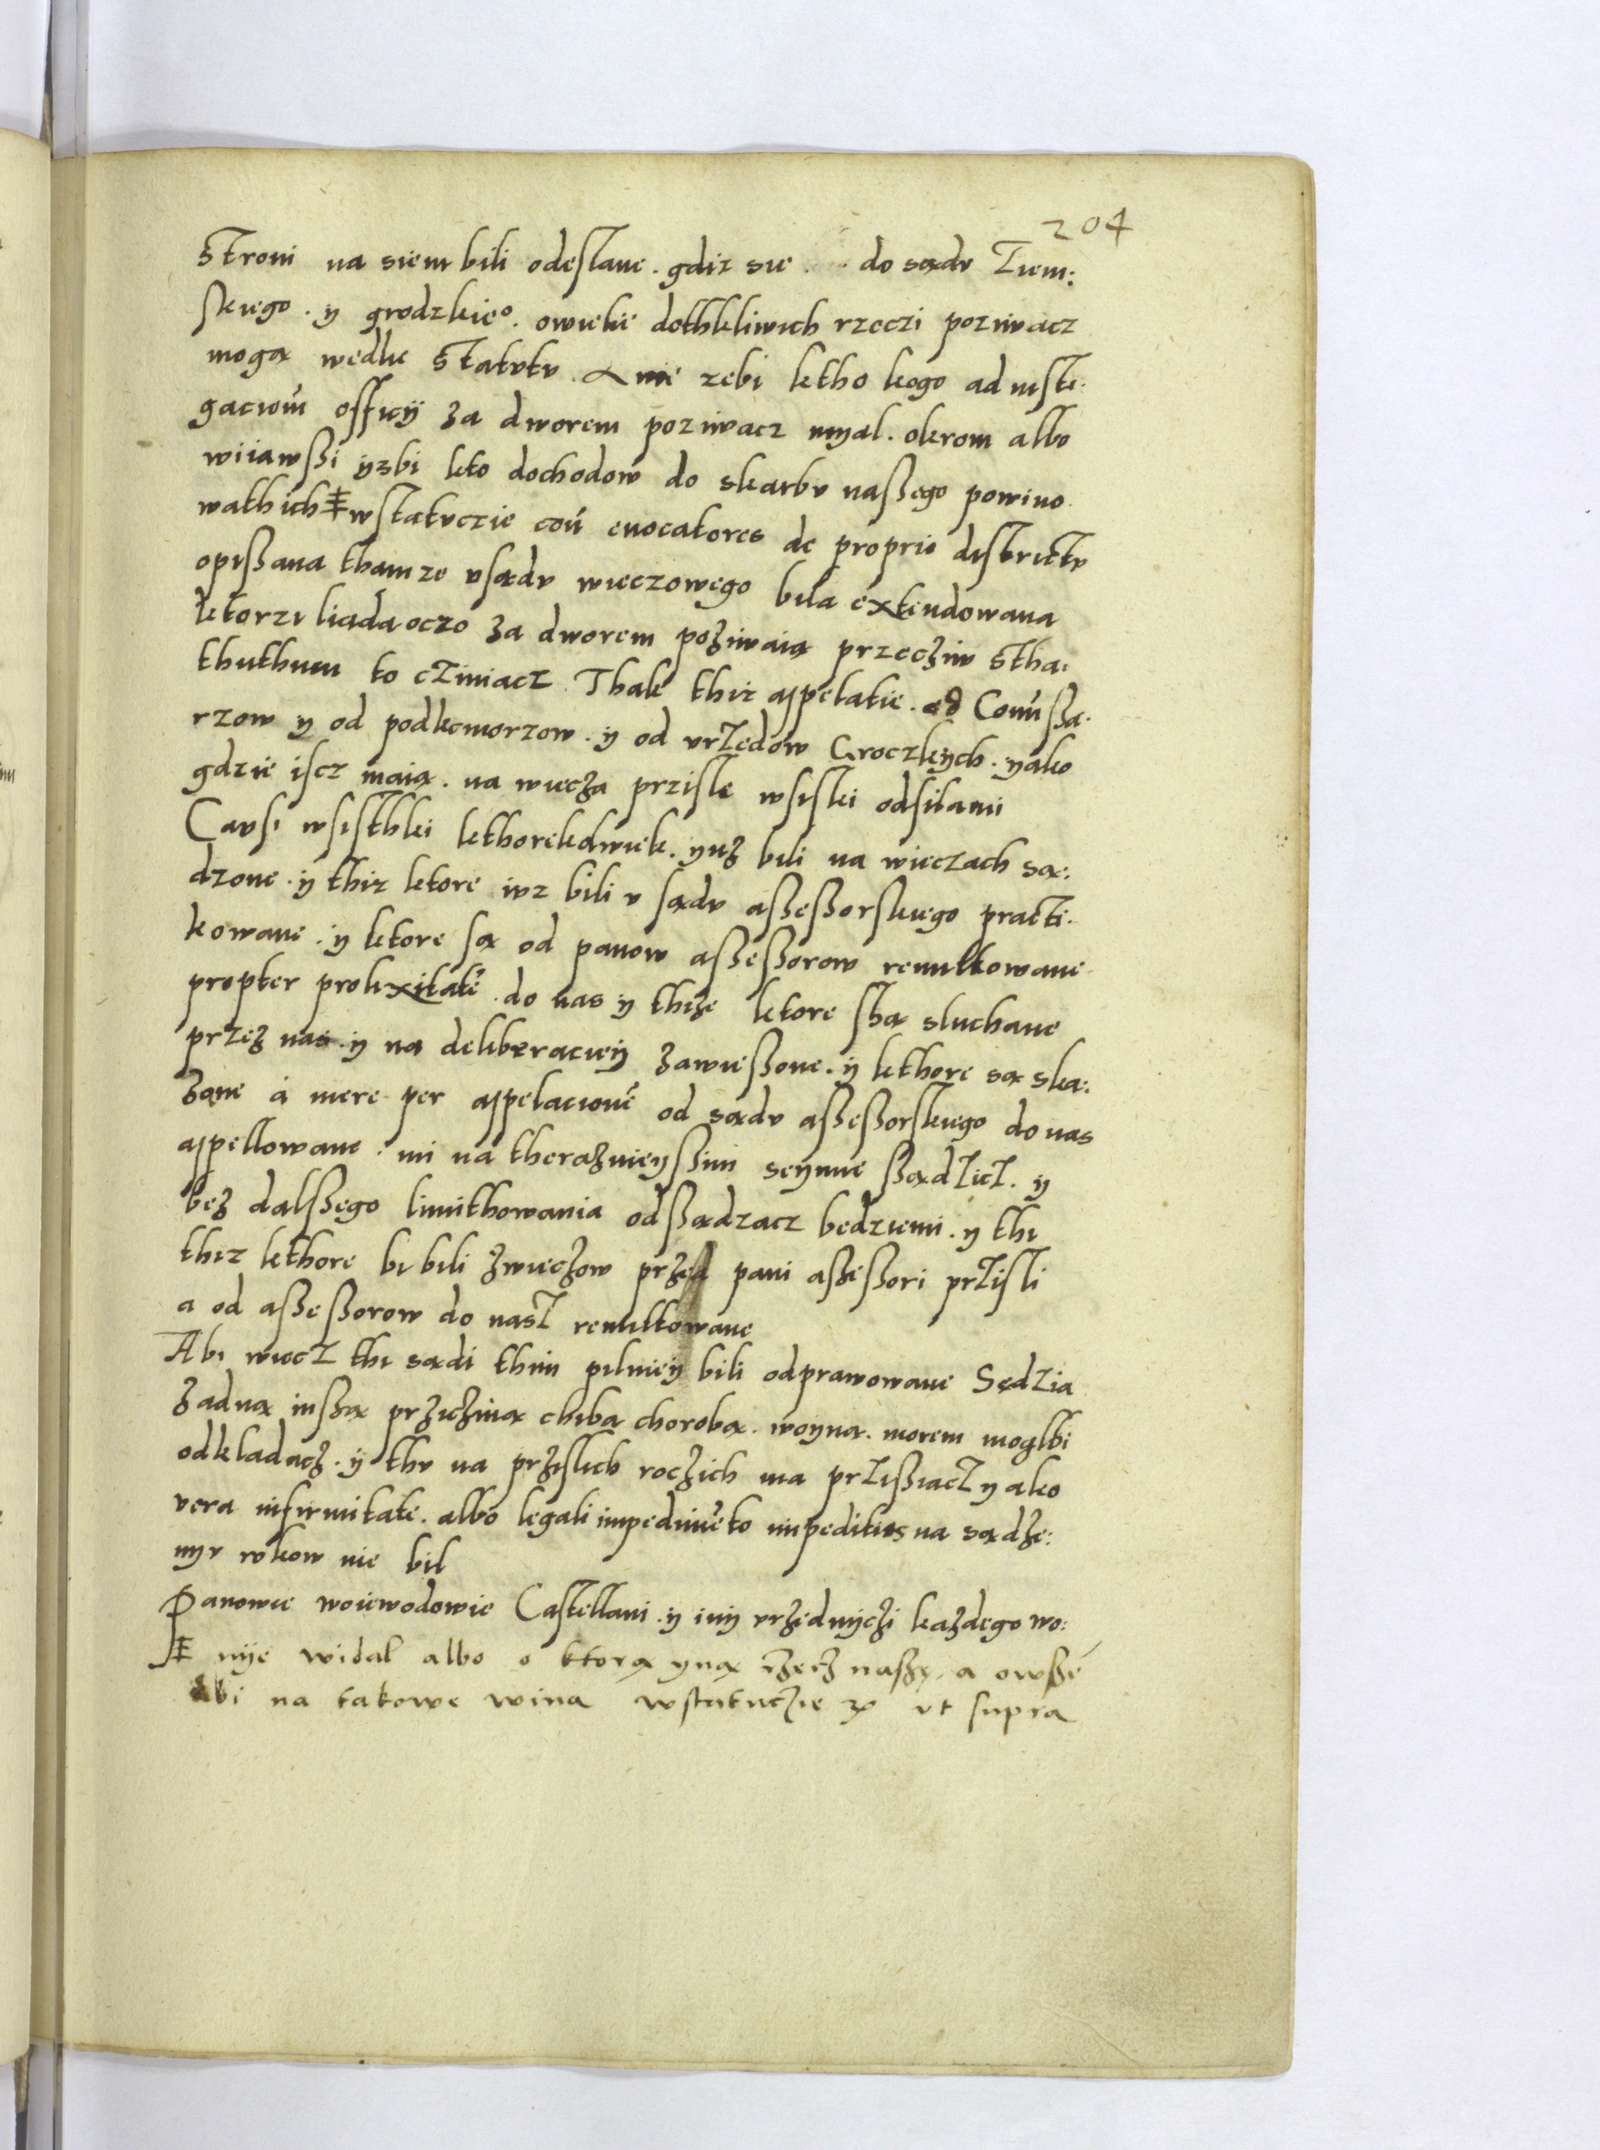 204
stroni na siem bili odeslane . gdiz sie do sądv Ziem:
skiego . y grodzkie° . owiekie dothkliwich rzeczi poziwacz
mogą wedle Statvtv . A nie zebi ktho kogo ad insti-
gacioni officij za dworem poziwacz myal . okrom albo
wiiawssi yzbi kto dochodow do skarbv nassego powino
wathich ⧧ wstatvczie con evocatores de proprio districtv
opissana thamze vsądv wieczowego bila extendowana
ktorzi liadaoczo za dworem poziwaią przecziw stha:
thuthum to cziniacz . Thak thiz appelatie . od Comissa-
rzow y od podkomorzow . y od vrzedow Groczkych . yako
gdzie iscz maią . na wiecza prziśle wsistki odsilami
Cavsi wsisthki kthorekolwiek . yuz bili na wieczach są:
dzone . y thiz ktore ivz bili v sądv assessorskiego practi-
kowane . y ktore są od panow assessorow remitkowane
propter prolixitatē . do nas y thize ktore sthą sluchane
przez nas . y na deliberaciey zawiessone . y kthore są ska:
zane á mere per appelacionē od sądv assessorskiego do nas
appellowane . mi na theraznieyssim seymie ssądzicz . y
bez dalssego limithowania odssądzacz bedziemi . y thi
thiz kthore bi bili zwieczow przed pani assessori przisli
a od assessorow do nasz remitkowane
Abi wiecz thi sądi thim pilniey bili odprawowane Sędzia
żadną inszą przicziną chiba chorobą . woyną . morem moglbi
odkladacz . y thv na przislich roczich ma przissiacz yako
vera infirmitate . albo legali impedimēto impeditus na sądze:
nyv rokow nie bil
Panowie woiewodowie Castellani . y iny vrzednyczi kazdego wo:
⧧ nije widal albo o ktorą yną rzecz naszę . a owszē
abi na takowe wina wstatuczie ut supra